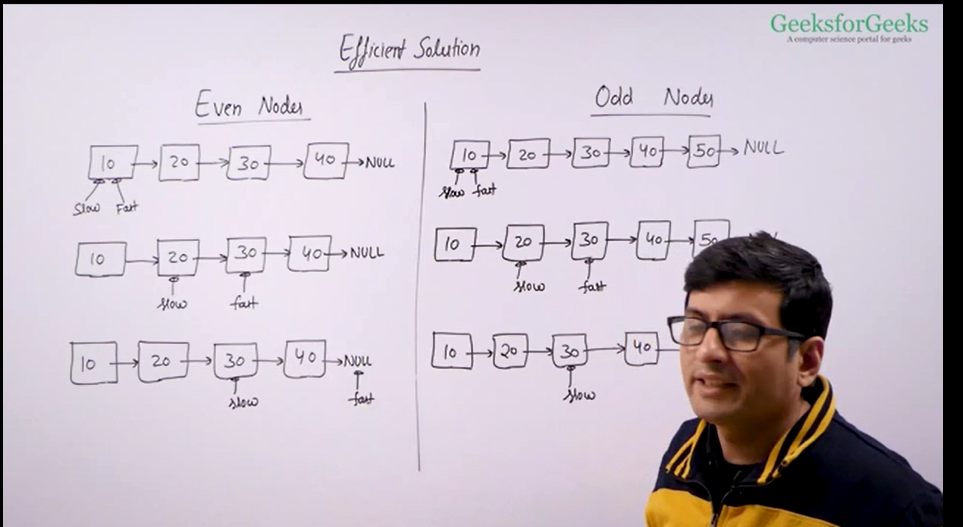 GeeksforGeeks
A computer science portal for geeks
Efficient Solution
Even Nodes
10 20 30 40 NULL
Slow Fast
10 20 30 40 NULL
slow fast
10 20 30 40 NULL
slow fast
Odd Nodes
10 20 30 40 50 NULL
slow fast
10 20 30 40 50
slow fast
10 20 30 40
slow